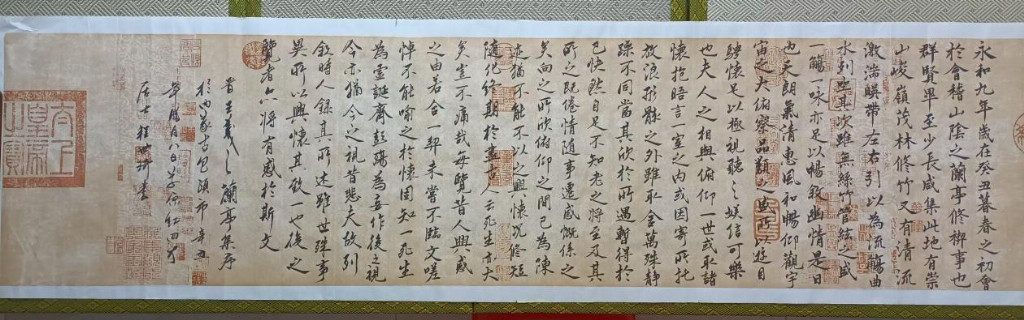 永和九年歲在癸丑暮春之初會
於會稽山陰之蘭亭修稧事也
群賢畢至少長咸集此地有崇
山峻嶺茂林修竹又有清流
激湍暎帶左右引以為流觴曲
水列坐其次雖無絲竹管絃之盛
一觴一詠亦足以暢敘幽情是日
也天朗氣清惠風和暢仰觀宇
宙之大俯察品類之盛所以遊目
騁懷足以極視聽之娛信可樂
也夫人之相與俯仰一世或取諸
懷抱晤言一室之內或因寄所托
放浪形骸之外雖取舍萬殊靜
躁不同當其欣於所遇暫得於
己快然自足不知老之將至及其
所之既惓情隨事遷感慨係之
矣向之所欣俯仰之間已為陳
迹猶不能不以之興懷況修短
隨化終期於盡古人云死生亦大
矣豈不痛哉每覽昔人興感
之由若合一契未嘗不臨文嗟
悼不能喻之於懷固知一死生
為虛誕齊彭殤為妄作後之視
今亦猶今之視昔悲夫故列
敘時人錄其所述雖世殊事
異所以興懷其致一也後之
覽者亦將有感於斯文
書王羲之蘭亭集序
於內蒙古包頭市辛丑
年
居士
太上皇帝之寶